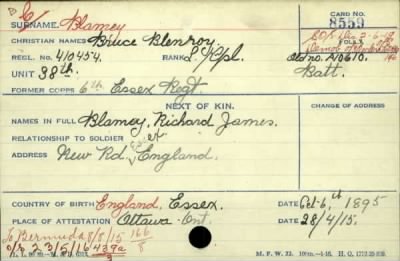 SURNAME. Blamey
CARD NO.
8559
CHRISTIAN NAMES Bruce Blenroy.
REGL. NO. 410454. RANK L/Cpl. Old no. A10610.
UNIT 38th. Batt.
FORMER CORPS 6th Essex Regt.
NEXT OF KIN.
CHANGE OF ADDRESS
NAMES IN FULL Blamey, Richard James.
RELATIONSHIP TO SOLDIER
ADDRESS New Rd, England.
COUNTRY OF BIRTH England, Essex. DATE Oct-6th 1895
PLACE OF ATTESTATION Ottawa-Ont. DATE 28/4/15.
To Bermuda 8/8/15 166/8
O/S 23/5/16 439a/3
M. F. W. 22.